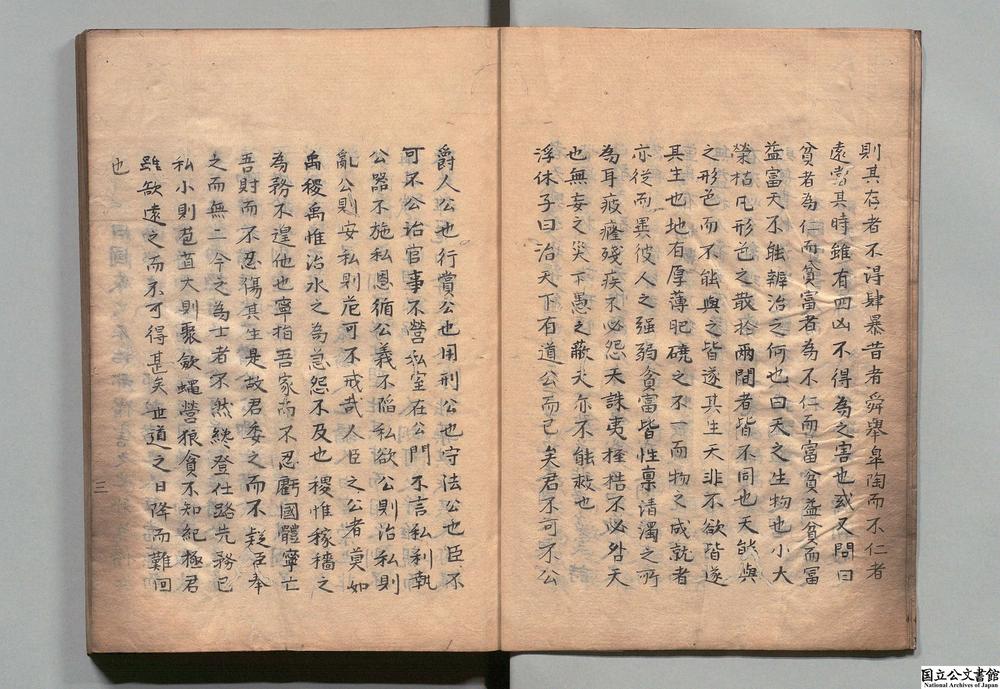 則其存者不得肆暴昔者舜舉皋陶而不仁者
遠當其時雖有四凶不得為之害也或又問曰
貧者為仁而貧富者為不仁而富貧益貧而富
益富天不能辨治之何也曰天之生物也小大
榮枯凡形色之散於兩間者皆不同也天能與
之形色而不能與之皆遂其生天非不欲皆遂
其生也地有厚薄肥磽之不一而物之成就者
亦從而異彼人之强弱貧富皆性稟清濁之所
為耳疲癃殘疾不必怨天誅夷桎梏不必咎天
也無妄之災下愚之蔽天亦不能救也
浮休子曰治天下有道公而已矣君不可不公
爵人公也行賞公也用刑公也守法公也臣不
可不公治官事不營私室在公門不言私利執
公器不施私恩循公義不陷私欲公則治私則
亂公則安私則危可不戒哉人臣之公者莫如
禹稷禹惟治水之為急怨不及也稷惟稼穡之
為務不遑他也寧損吾家而不忍虧國體寧亡
吾財而不忍傷其生是故君委之而不疑臣奉
之而無二今之為士者不然纔登仕路先務己
私小則苞苴大則聚斂蠅營狼貪不知紀極君
雖欲遠之而不可得甚矣世道之日降而難回
也
三
国立公文書館
National Archives of Japan